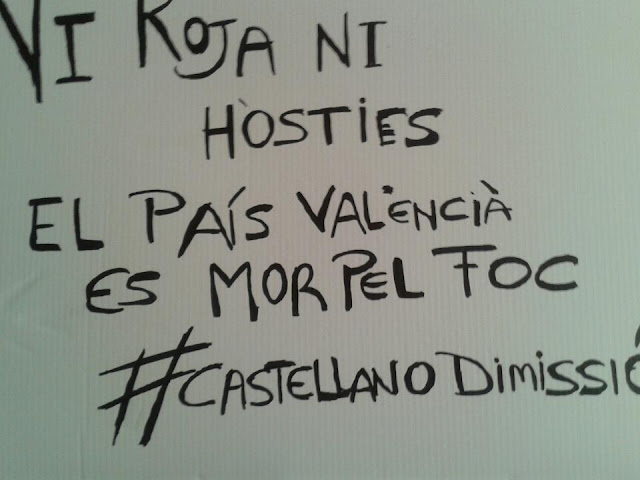 VI ROJA NI
HÒSTIES
EL PAÍS VALENCIÀ
ES MOR PEL FOC
#CASTELLANO DIMISSIÓ